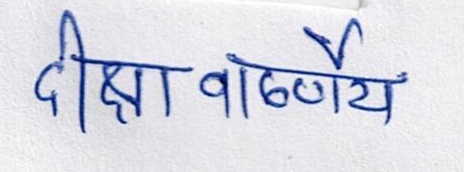 दीक्षा वार्ष्णेय